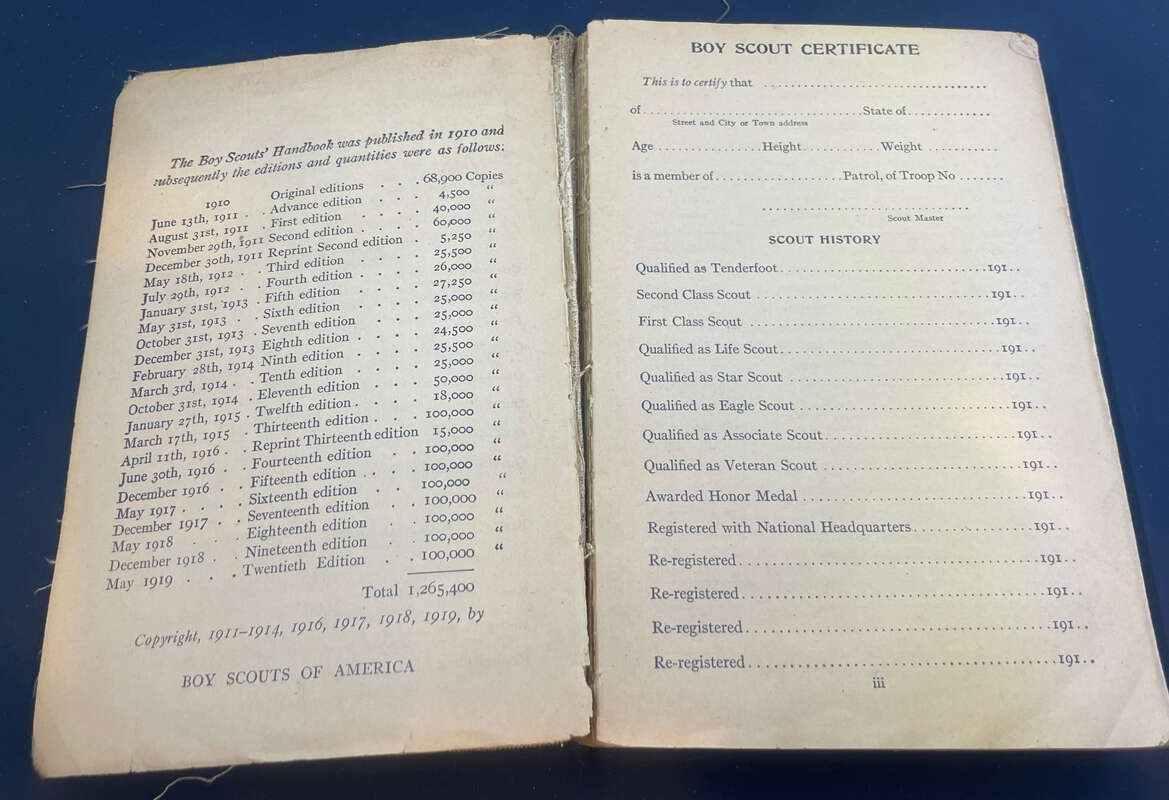 The Boy Scouts' Handbook was published in 1910 and
subsequently the editions and quantities were as follows:
1910 Original editions . . . 68,900 Copies
June 13th, 1911 . . Advance edition . . . 4,500 "
August 31st, 1911 . First edition . . . . 40,000 "
November 29th, 1911 Second edition . . . . 60,000 "
December 30th, 1911 Reprint Second edition . 5,250 "
May 18th, 1912 . . Third edition . . . . 25,500 "
July 29th, 1912 . . Fourth edition . . . . 26,000 "
January 31st, 1913 . Fifth edition . . . . 27,250 "
May 31st, 1913 . . Sixth edition . . . . 25,000 "
October 31st, 1913 . Seventh edition . . . 25,000 "
December 31st, 1913 Eighth edition . . . . 24,500 "
February 28th, 1914 Ninth edition . . . . 25,500 "
March 3rd, 1914 . . Tenth edition . . . . 25,000 "
October 31st, 1914 . Eleventh edition . . . 50,000 "
January 27th, 1915 . Twelfth edition . . . . 18,000 "
March 17th, 1915 . Thirteenth edition . . 100,000 "
April 11th, 1916 . . Reprint Thirteenth edition 15,000 "
June 30th, 1916 . . Fourteenth edition . . 100,000 "
December 1916 . . Fifteenth edition . . . 100,000 "
May 1917 . . . . Sixteenth edition . . 100,000 "
December 1917 . . Seventeenth edition . . 100,000 "
May 1918 . . . Eighteenth edition . . 100,000 "
December 1918 . . Nineteenth edition . . 100,000 "
May 1919 . . . . Twentieth Edition . . 100,000 "
Total 1,265,400
Copyright, 1911-1914, 1916, 1917, 1918, 1919, by
BOY SCOUTS OF AMERICA
BOY SCOUT CERTIFICATE
This is to certify that ........................
of ........................ State of ............
Street and City or Town address
Age ............ Height ............ Weight ............
is a member of ............ Patrol, of Troop No .......
Scout Master
SCOUT HISTORY
Qualified as Tenderfoot ........................ 191..
Second Class Scout ........................ 191..
First Class Scout ........................ 191..
Qualified as Life Scout ........................ 191..
Qualified as Star Scout ........................ 191..
Qualified as Eagle Scout ........................ 191..
Qualified as Associate Scout ........................ 191..
Qualified as Veteran Scout ........................ 191..
Awarded Honor Medal ........................ 191..
Registered with National Headquarters ............ 191..
Re-registered ........................ 191..
Re-registered ........................ 191..
Re-registered ........................ 191..
Re-registered ........................ 191..
iii